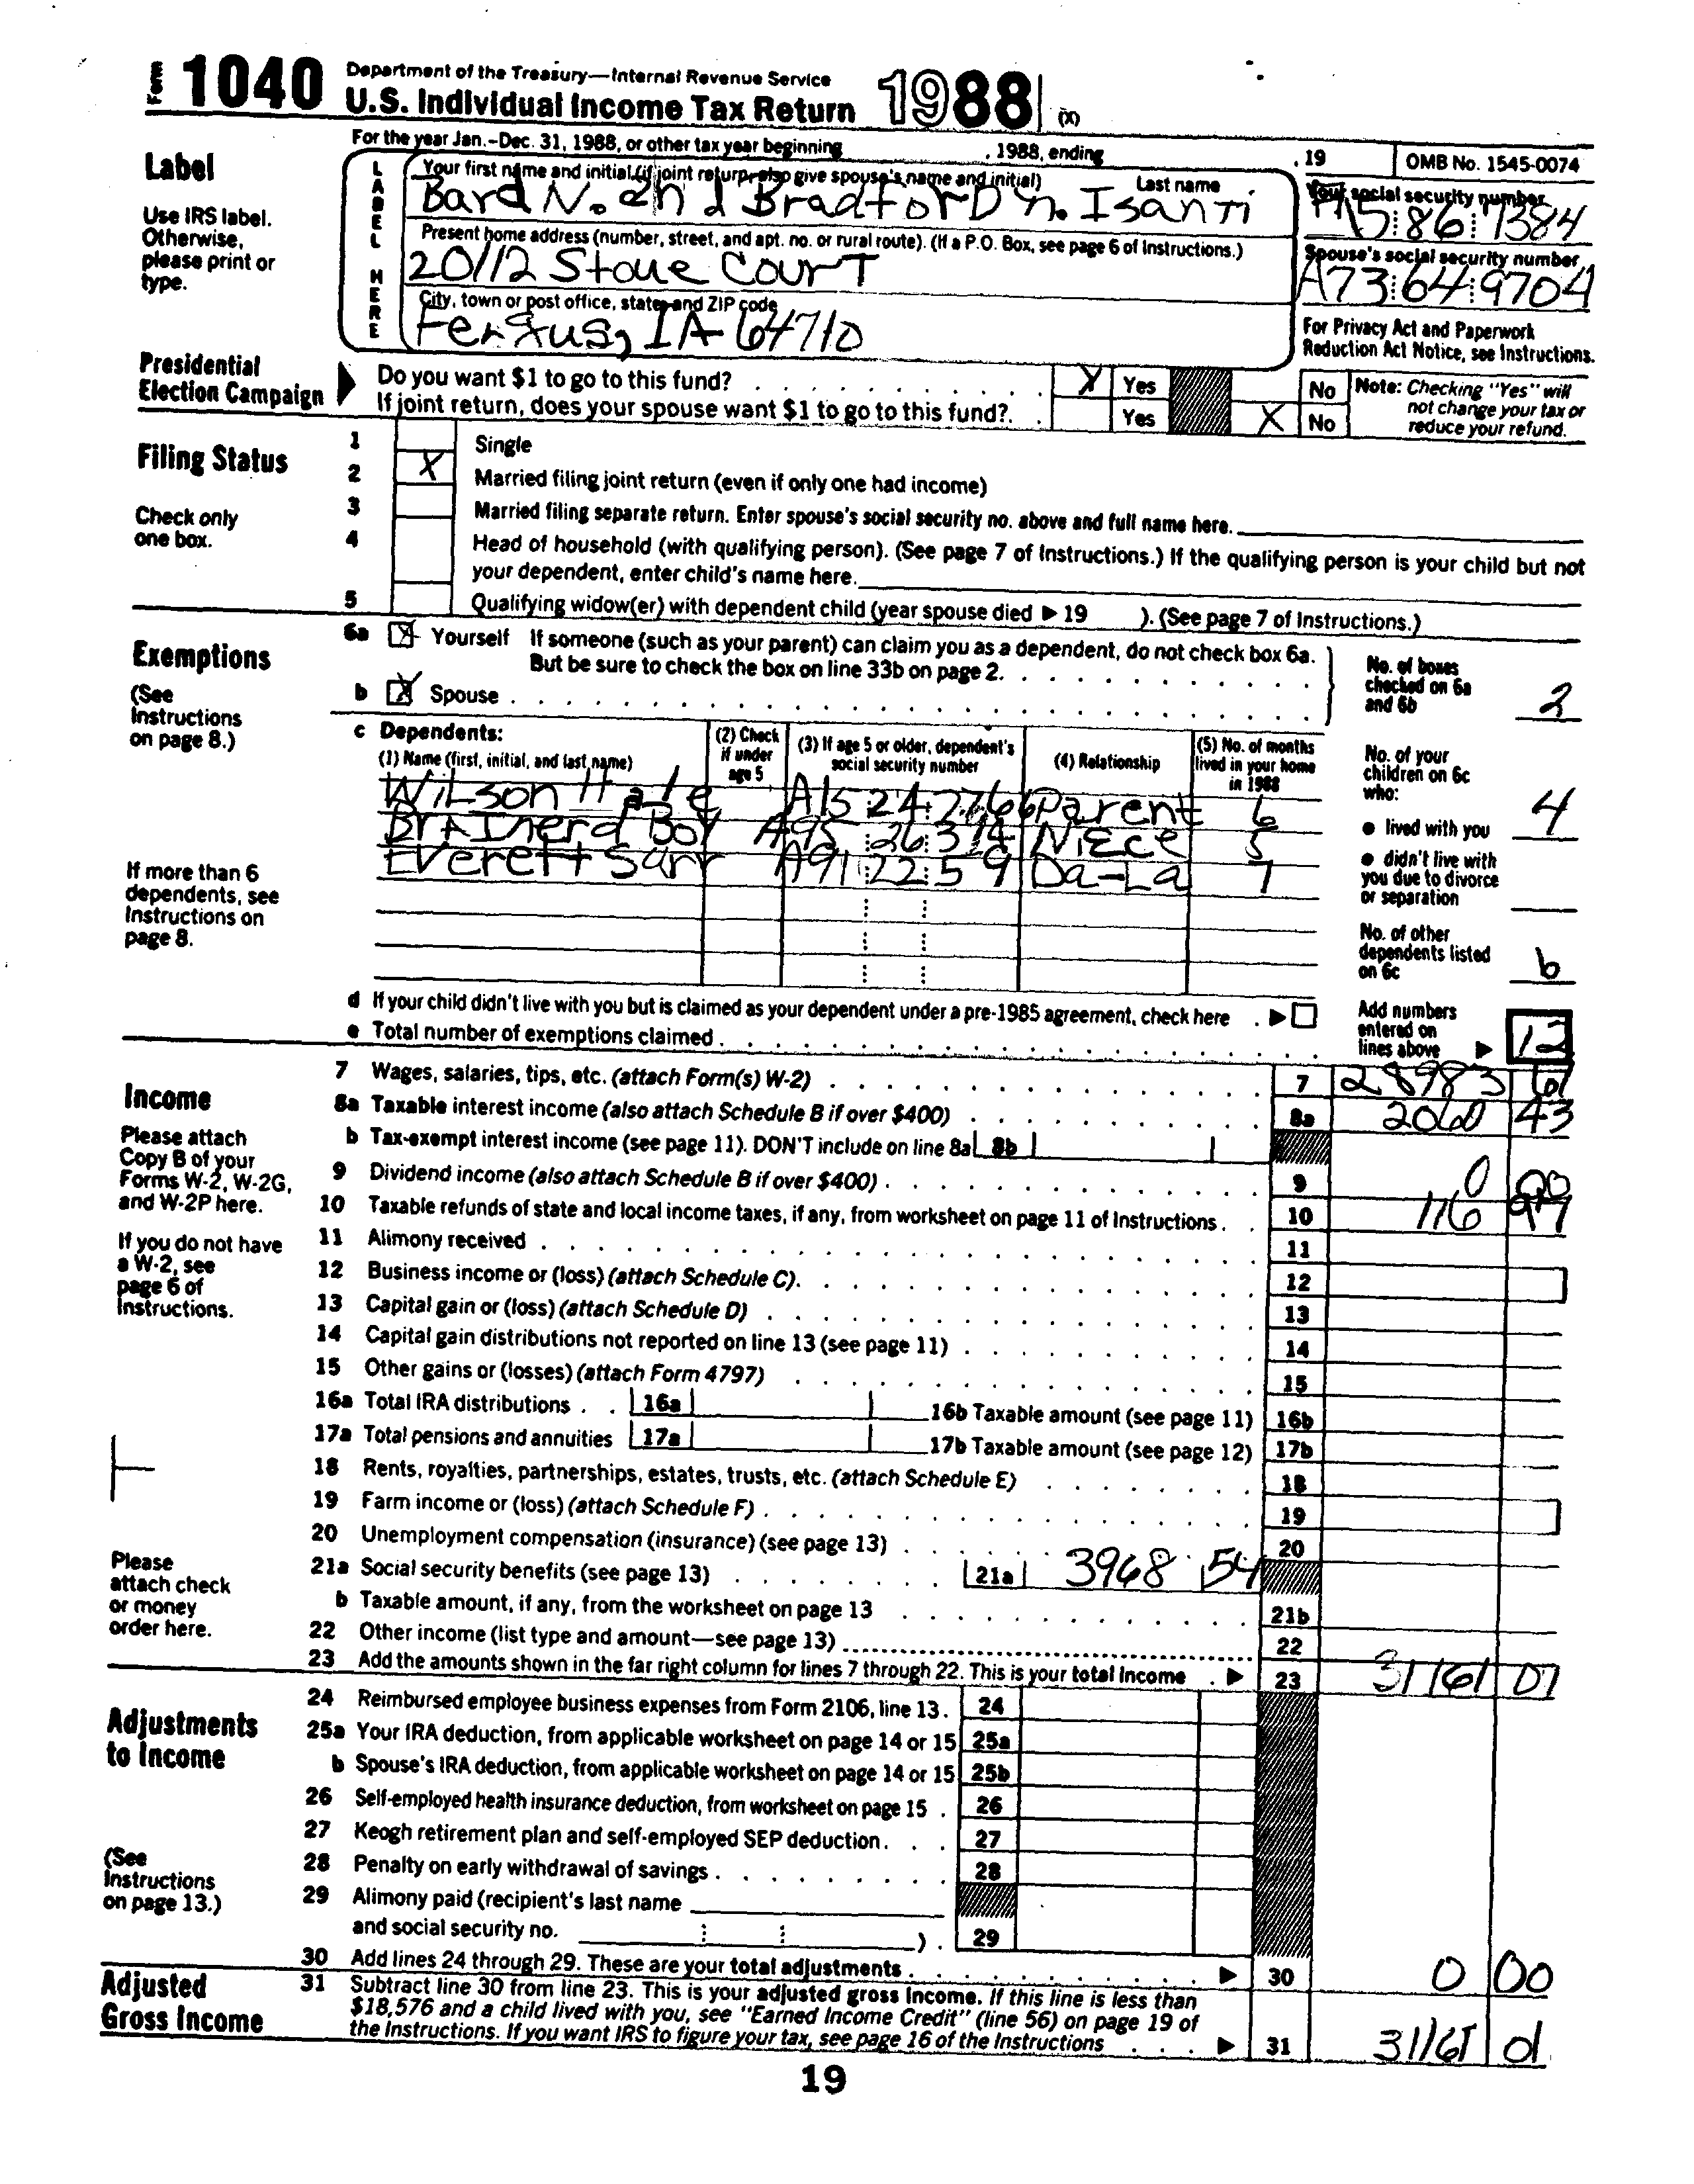 Form 1040 Department of the Treasury—Internal Revenue Service
U.S. Individual Income Tax Return 1988 (X)
For the year Jan.–Dec. 31, 1988, or other tax year beginning , 1988, ending , 19 OMB No. 1545-0074
Label
Use IRS label. Otherwise, please print or type.
LABEL HERE
Your first name and initial (if joint return, also give spouse's name and initial) Last name
Bard N. and Bradford N. Isanti
Your social security number
86 1384
Present home address (number, street, and apt. no. or rural route). (If a P.O. Box, see page 6 of Instructions.)
20112 Stoue Court
Spouse's social security number
A73 64 9704
City, town or post office, state, and ZIP code
Fergus, IA 64710
For Privacy Act and Paperwork Reduction Act Notice, see Instructions.
Presidential Election Campaign
Do you want $1 to go to this fund? X Yes No
If joint return, does your spouse want $1 to go to this fund? Yes X No
Note: Checking "Yes" will not change your tax or reduce your refund.
Filing Status
Check only one box.
1 Single
2 X Married filing joint return (even if only one had income)
3 Married filing separate return. Enter spouse's social security no. above and full name here.
4 Head of household (with qualifying person). (See page 7 of Instructions.) If the qualifying person is your child but not
your dependent, enter child's name here.
5 Qualifying widow(er) with dependent child (year spouse died ▶ 19 ). (See page 7 of Instructions.)
Exemptions
(See Instructions on page 8.)
6a X Yourself If someone (such as your parent) can claim you as a dependent, do not check box 6a.
But be sure to check the box on line 33b on page 2.
b X Spouse
No. of boxes checked on 6a and 6b 2
c Dependents:
(1) Name (first, initial, and last name) (2) Check if under age 5 (3) If age 5 or older, dependent's social security number (4) Relationship (5) No. of months lived in your home in 1988
Wilson Hale A15 24 7766 Parent 6
Brainerd Boy A95 26 314 Niece 5
Everett Sarr A91 22 59 Da-La 7
No. of your children on 6c who:
● lived with you 4
● didn't live with you due to divorce or separation
No. of other dependents listed on 6c 6
If more than 6 dependents, see Instructions on page 8.
d If your child didn't live with you but is claimed as your dependent under a pre-1985 agreement, check here ▶
e Total number of exemptions claimed
Add numbers entered on lines above ▶ 12
Income
Please attach Copy B of your Forms W-2, W-2G, and W-2P here.
If you do not have a W-2, see page 6 of Instructions.
Please attach check or money order here.
7 Wages, salaries, tips, etc. (attach Form(s) W-2) 7 28983 61
8a Taxable interest income (also attach Schedule B if over $400) 8a 2060 43
b Tax-exempt interest income (see page 11). DON'T include on line 8a 8b
9 Dividend income (also attach Schedule B if over $400) 9 0 00
10 Taxable refunds of state and local income taxes, if any, from worksheet on page 11 of Instructions. 10 116 97
11 Alimony received 11
12 Business income or (loss) (attach Schedule C). 12
13 Capital gain or (loss) (attach Schedule D) 13
14 Capital gain distributions not reported on line 13 (see page 11) 14
15 Other gains or (losses) (attach Form 4797) 15
16a Total IRA distributions 16a 16b Taxable amount (see page 11) 16b
17a Total pensions and annuities 17a 17b Taxable amount (see page 12) 17b
18 Rents, royalties, partnerships, estates, trusts, etc. (attach Schedule E) 18
19 Farm income or (loss) (attach Schedule F) 19
20 Unemployment compensation (insurance) (see page 13) 20
21a Social security benefits (see page 13) 21a 3968 54
b Taxable amount, if any, from the worksheet on page 13 21b
22 Other income (list type and amount—see page 13) 22
23 Add the amounts shown in the far right column for lines 7 through 22. This is your total income ▶ 23 31161 01
Adjustments to Income
(See Instructions on page 13.)
24 Reimbursed employee business expenses from Form 2106, line 13. 24
25a Your IRA deduction, from applicable worksheet on page 14 or 15 25a
b Spouse's IRA deduction, from applicable worksheet on page 14 or 15 25b
26 Self-employed health insurance deduction, from worksheet on page 15 26
27 Keogh retirement plan and self-employed SEP deduction 27
28 Penalty on early withdrawal of savings 28
29 Alimony paid (recipient's last name
and social security no. ). 29
30 Add lines 24 through 29. These are your total adjustments ▶ 30 0 00
Adjusted Gross Income
31 Subtract line 30 from line 23. This is your adjusted gross income. If this line is less than
$18,576 and a child lived with you, see "Earned Income Credit" (line 56) on page 19 of
the Instructions. If you want IRS to figure your tax, see page 16 of the Instructions ▶ 31 31161 01
19